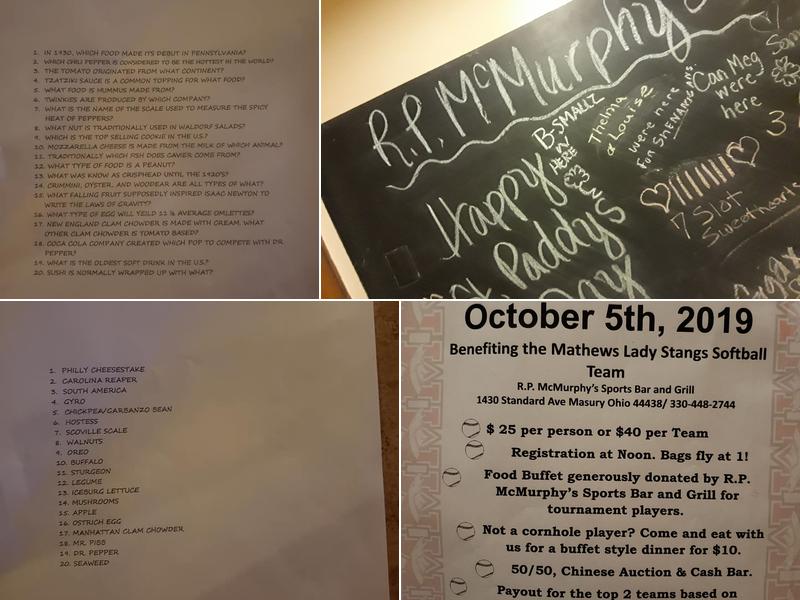 1. IN 1930, WHICH FOOD MADE ITS DEBUT IN PENNSYLVANIA?
2. WHICH CHILI PEPPER IS CONSIDERED TO BE THE HOTTEST IN THE WORLD?
3. THE TOMATO ORIGINATED FROM WHAT CONTINENT?
4. TZATZIKI SAUCE IS A COMMON TOPPING FOR WHAT FOOD?
5. WHAT FOOD IS HUMMUS MADE FROM?
6. TWINKIES ARE PRODUCED BY WHICH COMPANY?
7. WHAT IS THE NAME OF THE SCALE USED TO MEASURE THE SPICY
HEAT OF PEPPERS?
8. WHAT NUT IS TRADITIONALLY USED IN WALDORF SALADS?
9. WHICH IS THE TOP SELLING COOKIE IN THE U.S.?
10. MOZZARELLA CHEESE IS MADE FROM THE MILK OF WHICH ANIMAL?
11. TRADITIONALLY WHICH FISH DOES CAVIER COME FROM?
12. WHAT TYPE OF FOOD IS A PEANUT?
13. WHAT WAS KNOWN AS CRISPHEAD UNTIL THE 1920'S?
14. CRIMMINI, OYSTER, AND WOODEAR ARE ALL TYPES OF WHAT?
15. WHAT FALLING FRUIT SUPPOSEDLY INSPIRED ISAAC NEWTON TO
WRITE THE LAWS OF GRAVITY?
16. WHAT TYPE OF EGG WILL YEILD 11 ½ AVERAGE OMLETTES?
17. NEW ENGLAND CLAM CHOWDER IS MADE WITH CREAM. WHAT
OTHER CLAM CHOWDER IS TOMATO BASED?
18. COCA COLA COMPANY CREATED WHICH POP TO COMPETE WITH DR.
PEPPER?
19. WHAT IS THE OLDEST SOFT DRINK IN THE U.S.?
20. SUSHI IS NORMALLY WRAPPED UP WITH WHAT?
R.P. McMurphy's
Happy
Paddys
Day
B. SMALLZ
IN
HERE
Thelma
& Louise
were here
For SHENANIGANS
Can Meg
were
here
3
7 Slot
Sweethearts
1. PHILLY CHEESESTAKE
2. CAROLINA REAPER
3. SOUTH AMERICA
4. GYRO
5. CHICKPEA/GARBANZO BEAN
6. HOSTESS
7. SCOVILLE SCALE
8. WALNUTS
9. OREO
10. BUFFALO
11. STURGEON
12. LEGUME
13. ICEBURG LETTUCE
14. MUSHROOMS
15. APPLE
16. OSTRICH EGG
17. MANHATTAN CLAM CHOWDER
18. MR. PIBB
19. DR. PEPPER
20. SEAWEED
October 5th, 2019
Benefiting the Mathews Lady Stangs Softball
Team
R.P. McMurphy's Sports Bar and Grill
1430 Standard Ave Masury Ohio 44438/ 330-448-2744
$ 25 per person or $40 per Team
Registration at Noon. Bags fly at 1!
Food Buffet generously donated by R.P.
McMurphy's Sports Bar and Grill for
tournament players.
Not a cornhole player? Come and eat with
us for a buffet style dinner for $10.
50/50, Chinese Auction & Cash Bar.
Payout for the top 2 teams based on